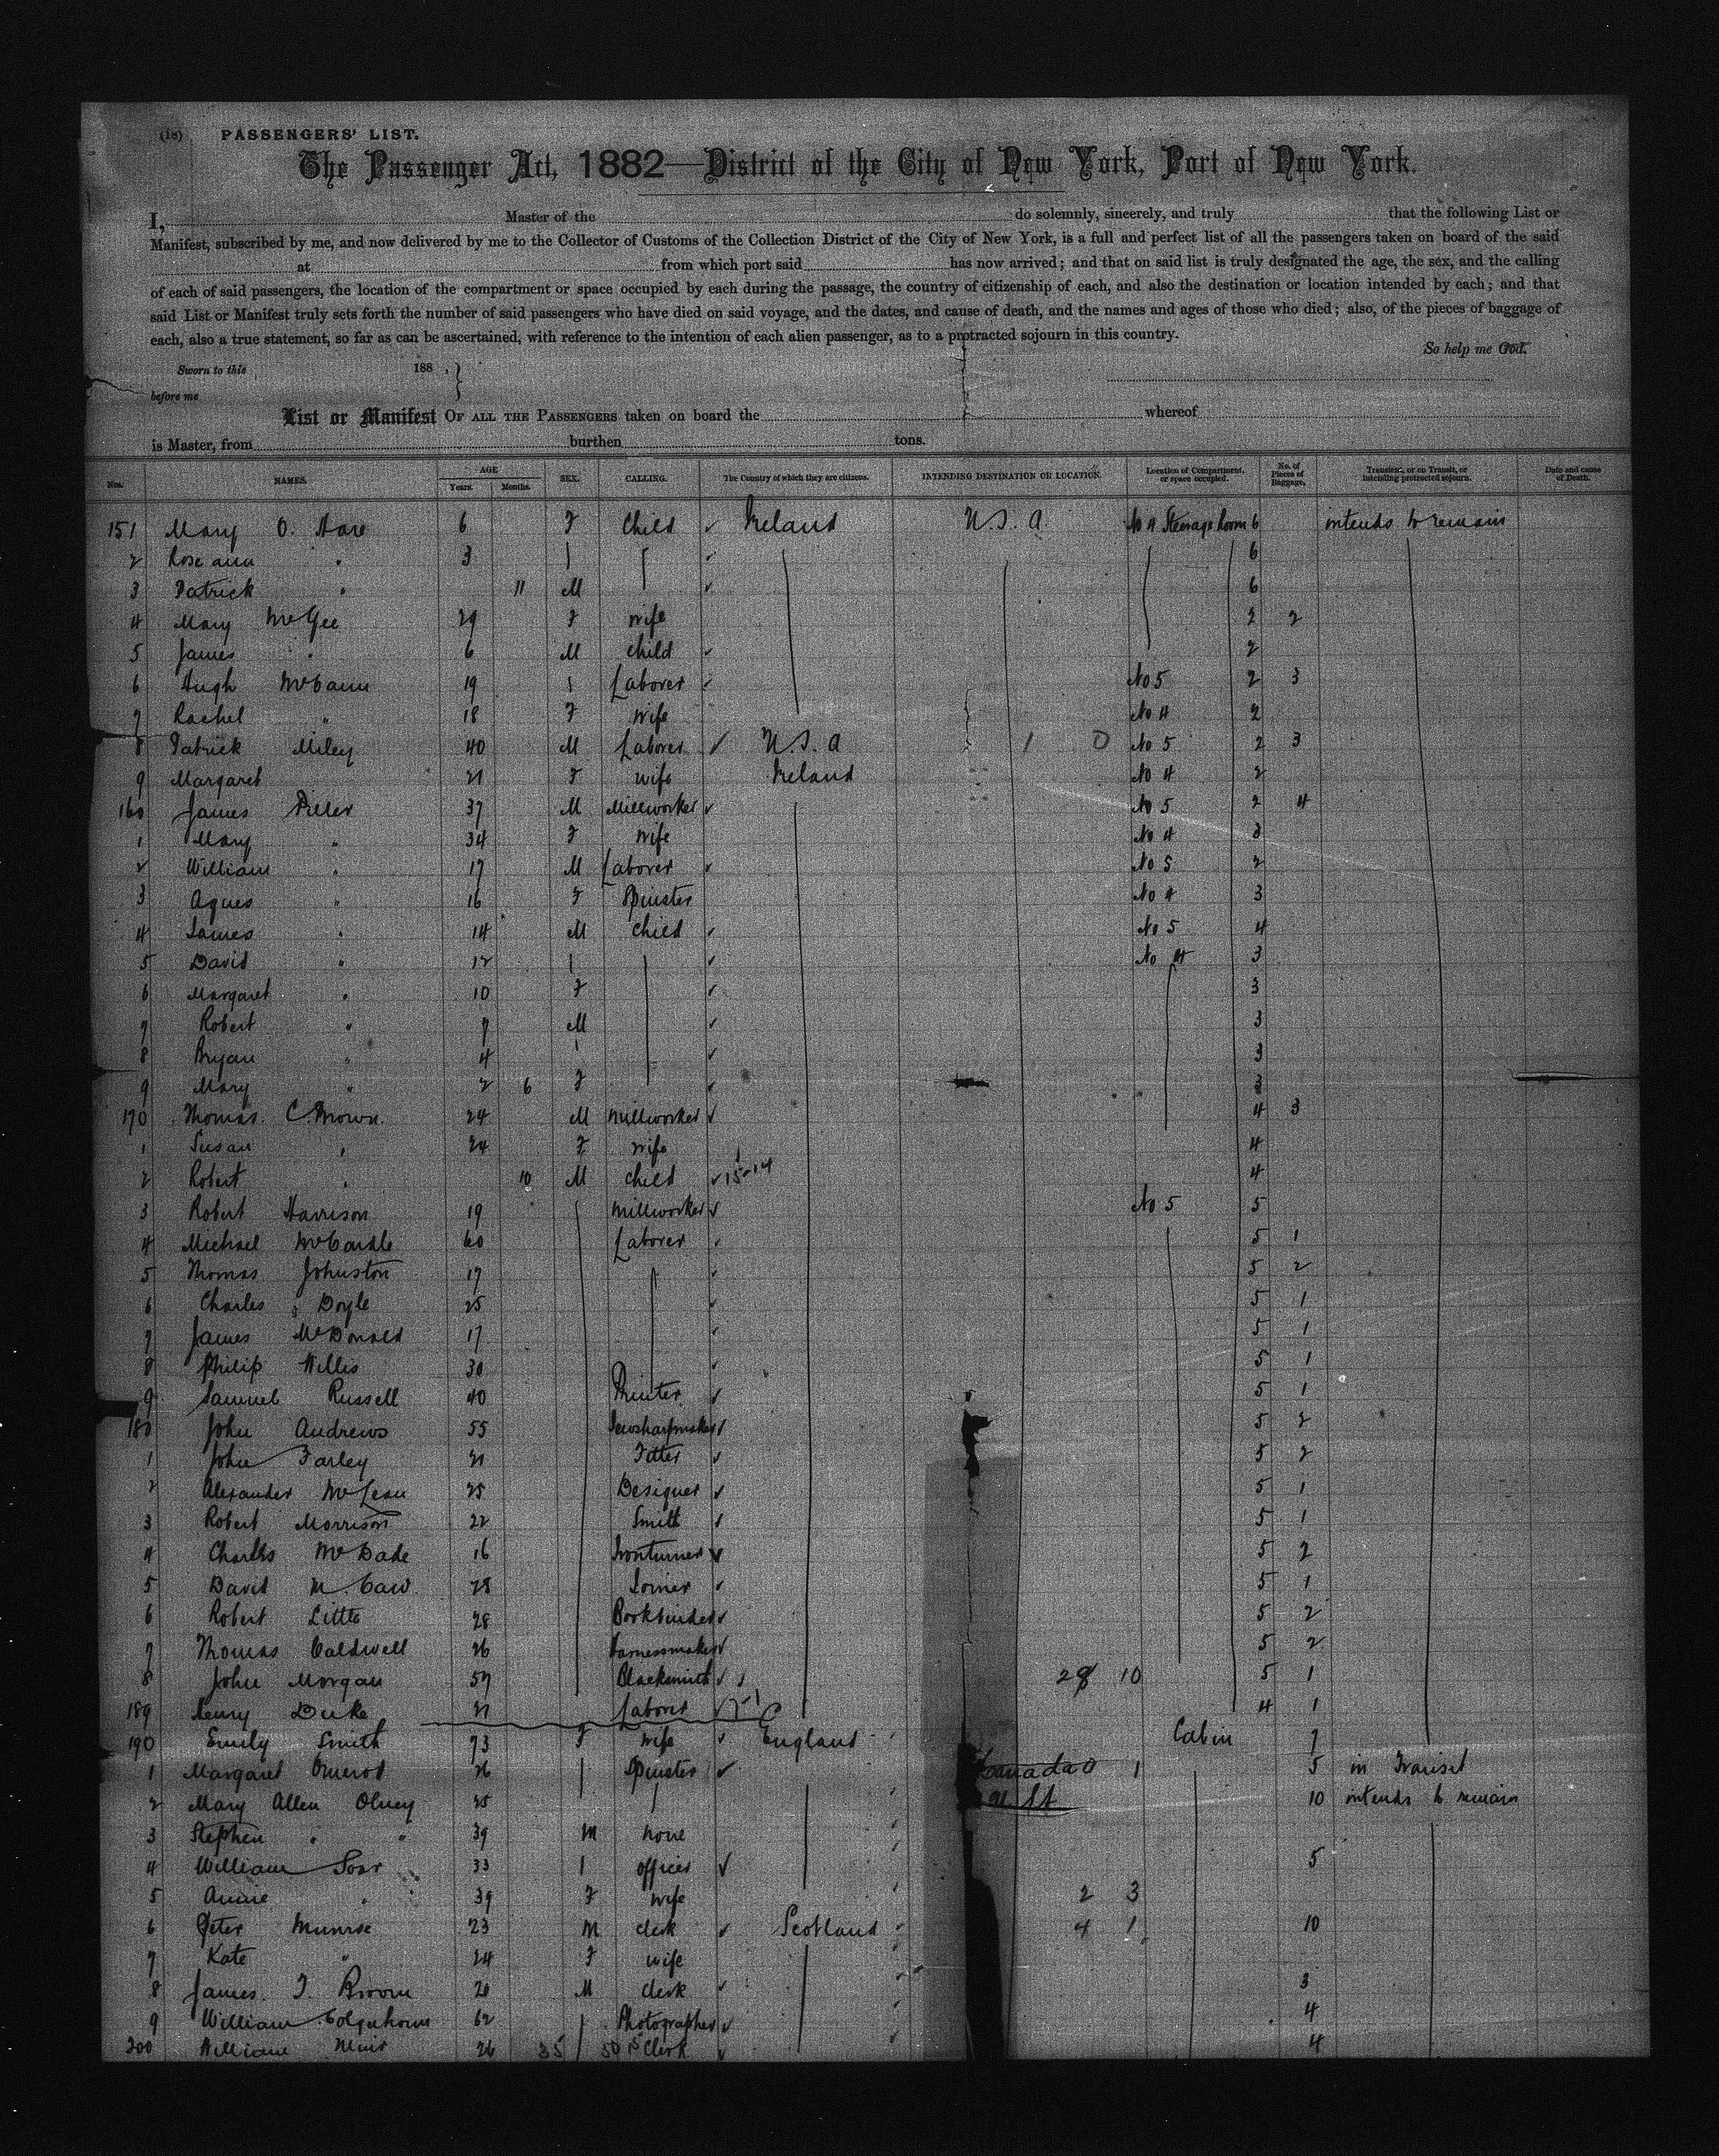 (18) PASSENGERS' LIST.
The Passenger Act, 1882—District of the City of New York, Port of New York.
I, Master of the do solemnly, sincerely, and truly that the following List or
Manifest, subscribed by me, and now delivered by me to the Collector of Customs of the Collection District of the City of New York, is a full and perfect list of all the passengers taken on board of the said
at from which port said has now arrived; and that on said list is truly designated the age, the sex, and the calling
of each of said passengers, the location of the compartment or space occupied by each during the passage, the country of citizenship of each, and also the destination or location intended by each; and that
said List or Manifest truly sets forth the number of said passengers who have died on said voyage, and the dates, and cause of death, and the names and ages of those who died; also, of the pieces of baggage of
each, also a true statement, so far as can be ascertained, with reference to the intention of each alien passenger, as to a protracted sojourn in this country.
So help me God.
Sworn to this 188 ,
before me
List or Manifest OF ALL THE PASSENGERS taken on board the whereof
is Master, from burthen tons.
Nos. NAMES. AGE Years. Months. SEX. CALLING. The Country of which they are citizens. INTENDING DESTINATION OR LOCATION. Location of Compartment, or space occupied. No. of Pieces of Baggage. Transient, or on Transit, or intending protracted sojourn. Date and cause of Death.
151 Mary O. Hare 6 F Child Ireland U.S.A. No 4 Steerage Room 6 intends to remain
2 Rose ann " 3 6
3 Patrick " 11 M 6
4 Mary McGee 29 F wife 2 2
5 James " 6 M child 2
6 Hugh McCann 19 Laborer No 5 2 3
7 Rachel " 18 F wife No 4 2
8 Patrick Miley 40 M Laborer U.S.A 1 0 No 5 2 3
9 Margaret 21 F wife Ireland No 4 2
160 James 37 M Millworker No 5 2 4
1 Mary " 34 F wife No 4 3
2 William " 17 M Laborer No 5 2
3 Agnes " 16 F Spinster No 4 3
4 James " 14 M child No 5 4
5 David " 12 No 4 3
6 Margaret " 10 F 3
7 Robert " 7 M 3
8 Bryan " 4 3
9 Mary " 2 6 F 3
170 Thomas C. Brown 24 M Millworker 4 3
1 Susan " 24 F wife 4
2 Robert " 10 M child 15-14 4
3 Robert Harrison 19 Millworker No 5 5
4 Michael McCardle 60 Laborer 5 1
5 Thomas Johnston 17 5 2
6 Charles Doyle 25 5 1
7 James McDonald 17 5 1
8 Philip Willis 30 5 1
9 Samuel Russell 40 Printer 5 1
180 John Andrews 55 Jewsharpmaker 5 2
1 John Farley 21 Fitter 5 2
2 Alexander McLean 25 Designer 5 1
3 Robert Morrison 22 Smith 5 1
4 Charles McDade 16 Ironturner 5 2
5 David M. Caw 28 Joiner 5 1
6 Robert Little 28 Bookbinder 5 2
7 Thomas Caldwell 26 Harnessmaker 5 2
8 John Morgan 57 Blacksmith 28 10 5 1
189 Henry Duke 21 Laborer 4 1
190 Emily Smith 73 F wife England Cabin 7
1 Margaret Omerod 26 Spinster Canada 0 1 5 in Transit
2 Mary Allen Olney 25 10 intends to remain
3 Stephen " " 39 M none
4 William Soar 33 officer 5
5 Annie " 39 F wife 2 3
6 Peter Munroe 23 M clerk Scotland 4 1 10
7 Kate " 24 F wife
8 James. T. Broom 20 M clerk 3
9 William Colquhoun 62 Photographer 4
200 William Muir 26 35 50 15 Clerk 4